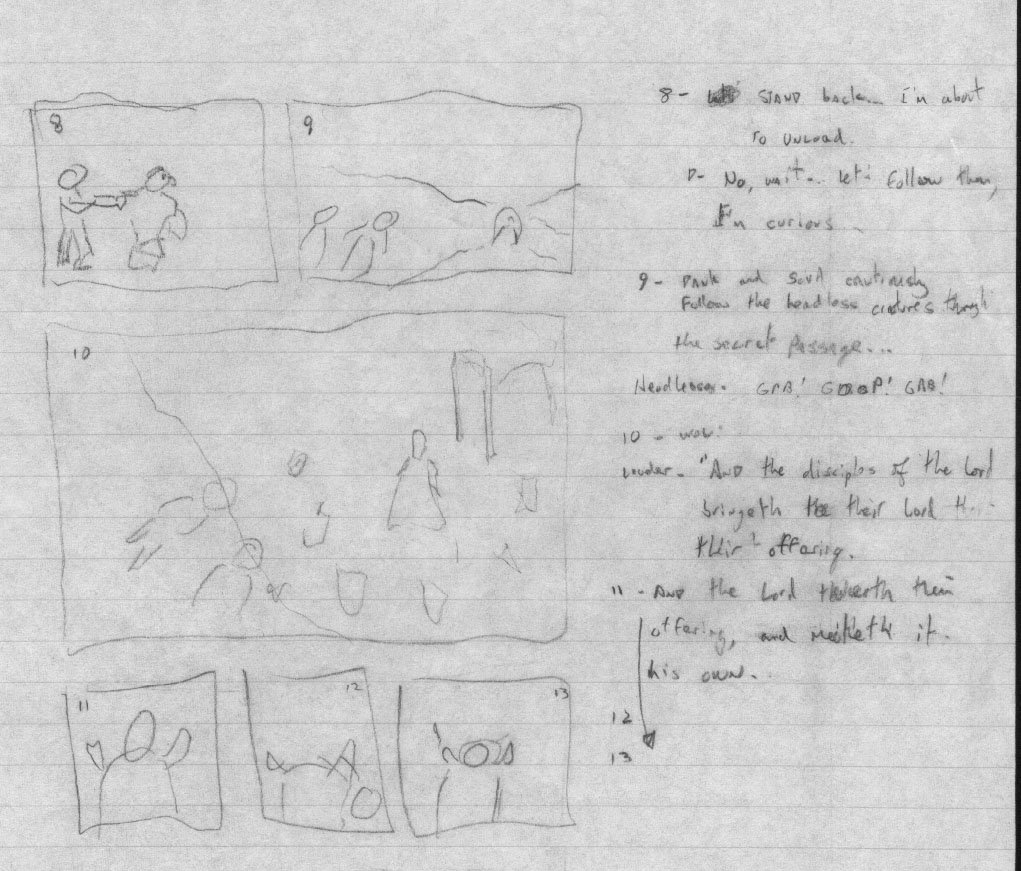 8
9
10
11
12
13
8 - STAND back... I'm about
to UNLOAD.
D- No, wait... let's Follow them,
I'm curious...
9 - and cautiously
Follow the headless creatures through
the secret passage...
Headlesses. GRB! GROOP! GRB!
10 - wow:
Leader. "AND the disciples of the Lord
bringeth their Lord
their offering.
11 - AND the Lord their
offering, and maketh it
his own...
12
13